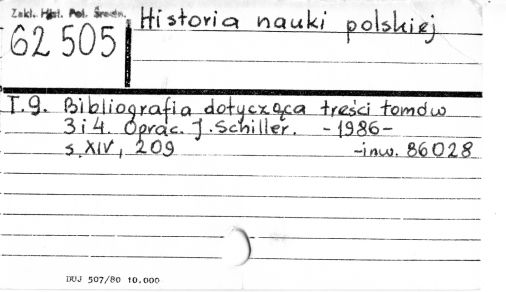 Zakł. Hist. Pol. Średn.
62 505
Historia nauki polskiej
T.9. Bibliografia dotycząca treści tomów
3 i 4. Oprac. J. Schiller. -1986-
s. XIV, 209 -inw. 86028
DUJ 507/80 10.000